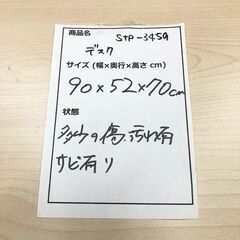 商品名 STP-3459
デスク
サイズ (幅×奥行×高さ cm)
90×52×70cm
状態
多少の傷.汚れ有
サビ有り